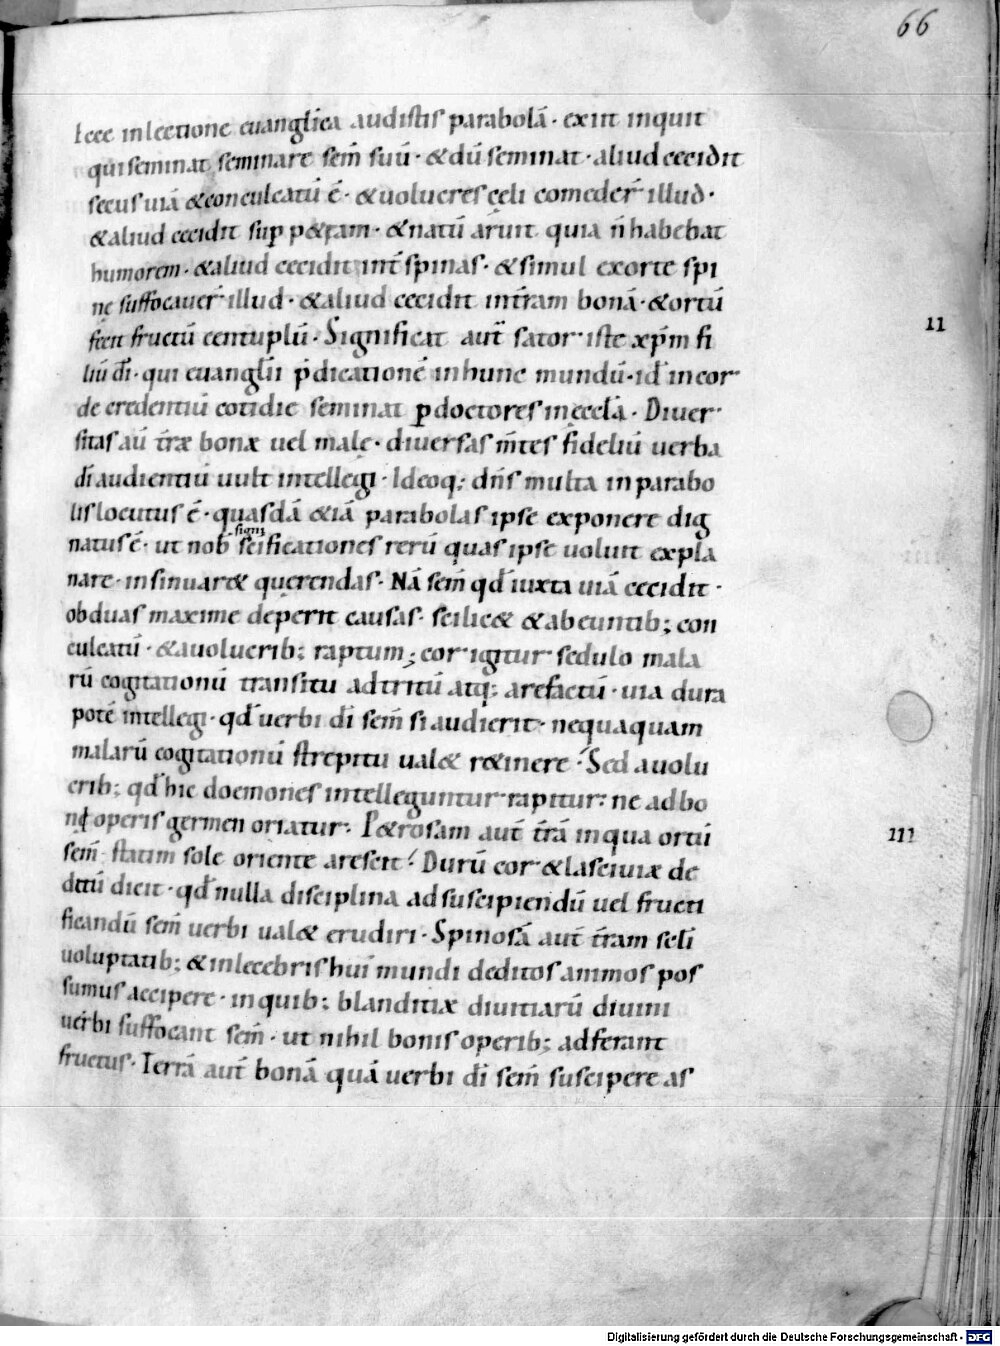 66
Ecce in lectione euanglica audistis parabolā · exiit inquit
qui seminat seminare sem̄ suū · & dū seminat · aliud cecidit
secus uiā & conculcatū ē · & uolucres cęli comeder̄ illud ·
& aliud cecidit sup p&ram · & natū aruit quia n̄ habebat
humorem · & aliud cecidit int̄ spinas · & simul exorte spi
nę suffocauer̄ illud · & aliud cecidit in t̄ram bonā · & ortū
fecit fructū centuplū · Significat aut̄ sator iste xp̄m fi
liū dī · qui euanglii p̄dicationē in hunc mundū · id̄ in cor
de credentiū cotidie seminat ꝑ doctores in ęccla · Diuer
sitas aū t̄ræ bonæ uel malę · diuersas m̄tes fideliū uerba
dī audientiū uult intellegi · Ideoq; dn̄s multa in parabo
lis locutus ē · quasdā &iā parabolas ipse exponere dig
natus ē · ut nob scificationes rerū quas ipse uoluit expla
signi
nare · insinuar& querendas · Nā sem̄ qd̄ iuxta uiā cecidit ·
ob duas maxime deperit causas · scilic& & ab euntib; con
culcatū · & a uolucrib; raptum; cor igitur sedulo mala
rū cogitationū transitu adtritū atq; arefactū · uia dura
potē intellegi · qd̄ uerbi dī sem̄ si audierit · nequaquam
malarū cogitationū strepitu ual& r&inere · Sed a uolu
crib; qd̄ hic doemones intelleguntur rapitur · ne ad bo
ni operis germen oriatur · P&rosam aut̄ t̄rā in qua ortū
sem̄ statim sole oriente arescit · Durū cor & lasciuiæ de
ditū dicit · qd̄ nulla disciplina ad suscipiendū uel fructi
ficandū sem̄ uerbi ual& erudiri · Spinosā aut̄ t̄ram scli
uoluptatib; & inlecebris hui mundi deditos animos pos
sumus accipere · in quib; blanditiæ diuitiarū diuini
uerbi suffocant sem̄ · ut nihil bonis operib; adferant
fructus · Terrā aut̄ bonā quā uerbi dī sem̄ suscipere as
II
III
Digitalisierung gefördert durch die Deutsche Forschungsgemeinschaft - DFG